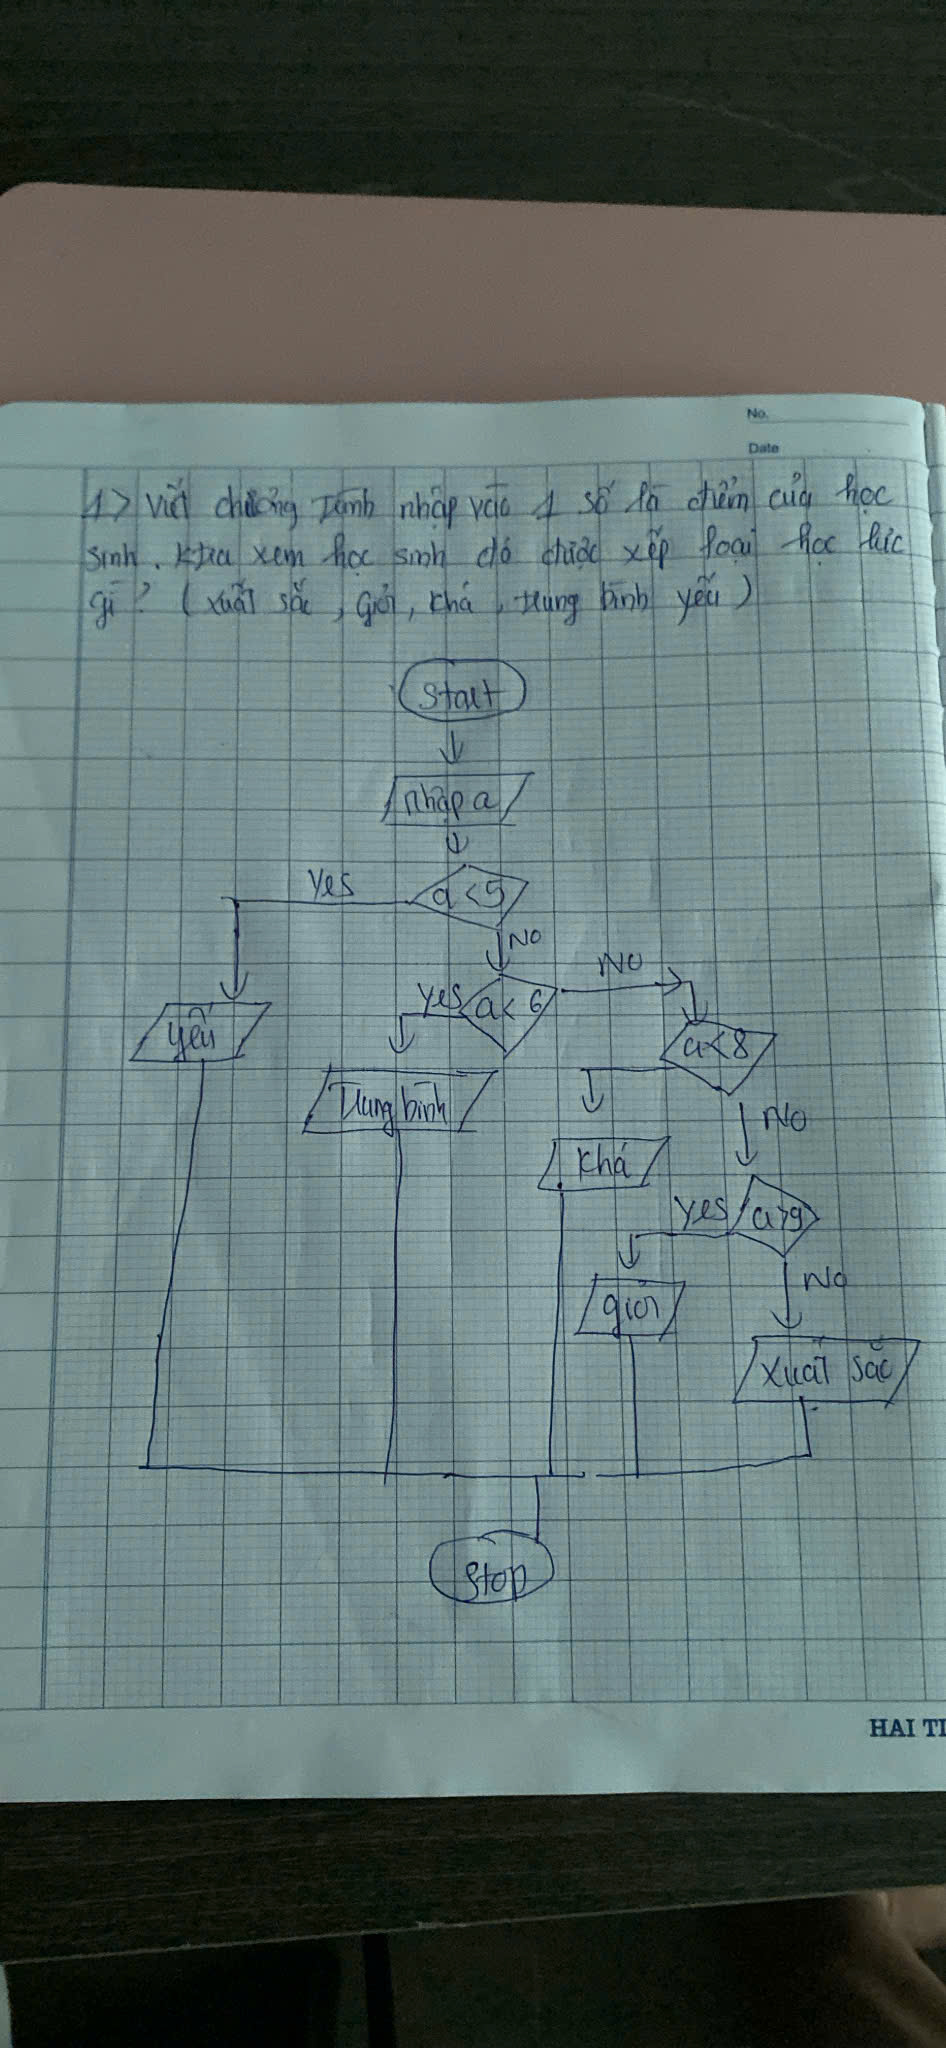 No.
Date
1> Viết chương trình nhập vào 1 số là điểm của học
sinh. Ktra xem học sinh đó được xếp loại học lực
gì? (xuất sắc, giỏi, khá, trung bình yếu)
Start
nhập a
a<5
Yes
No
a<6
yes
No
yếu
a<8
Trung bình
No
Khá
a>9
yes
No
giỏi
xuất sắc
Stop
HAI TI